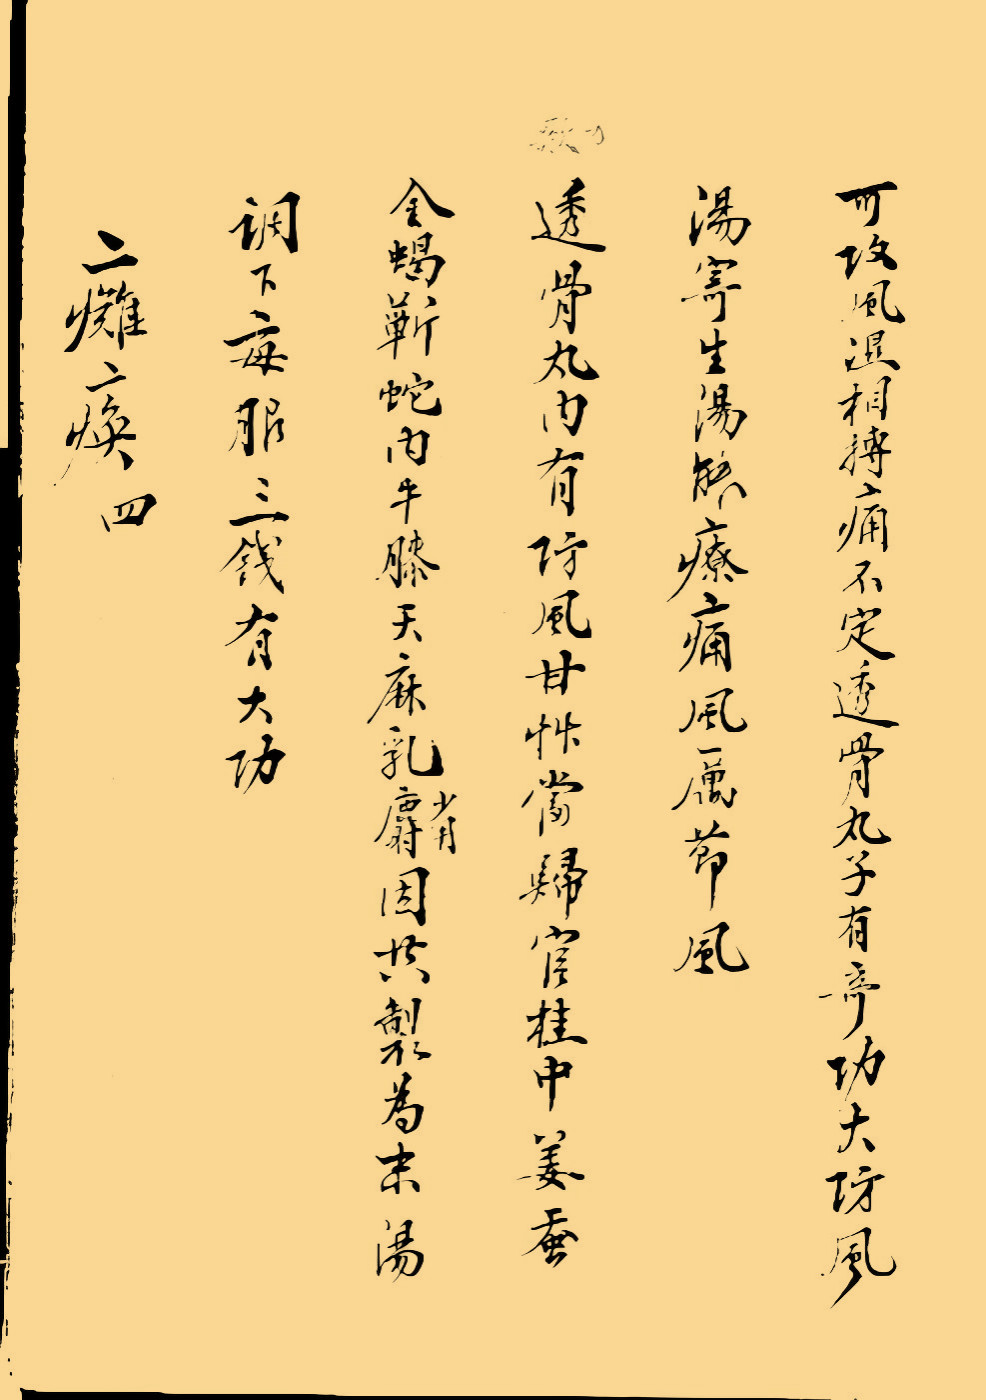 可攻風濕相搏痛不定透骨丸子有奇功大防風
湯寄生湯能療痛風厲節風
透骨丸內有防風甘草當歸官桂中姜蚕
全蝎蘄蛇内牛膝天麻乳麝少用因共製為末湯
調下每服三錢有大功
二癱二瘓四